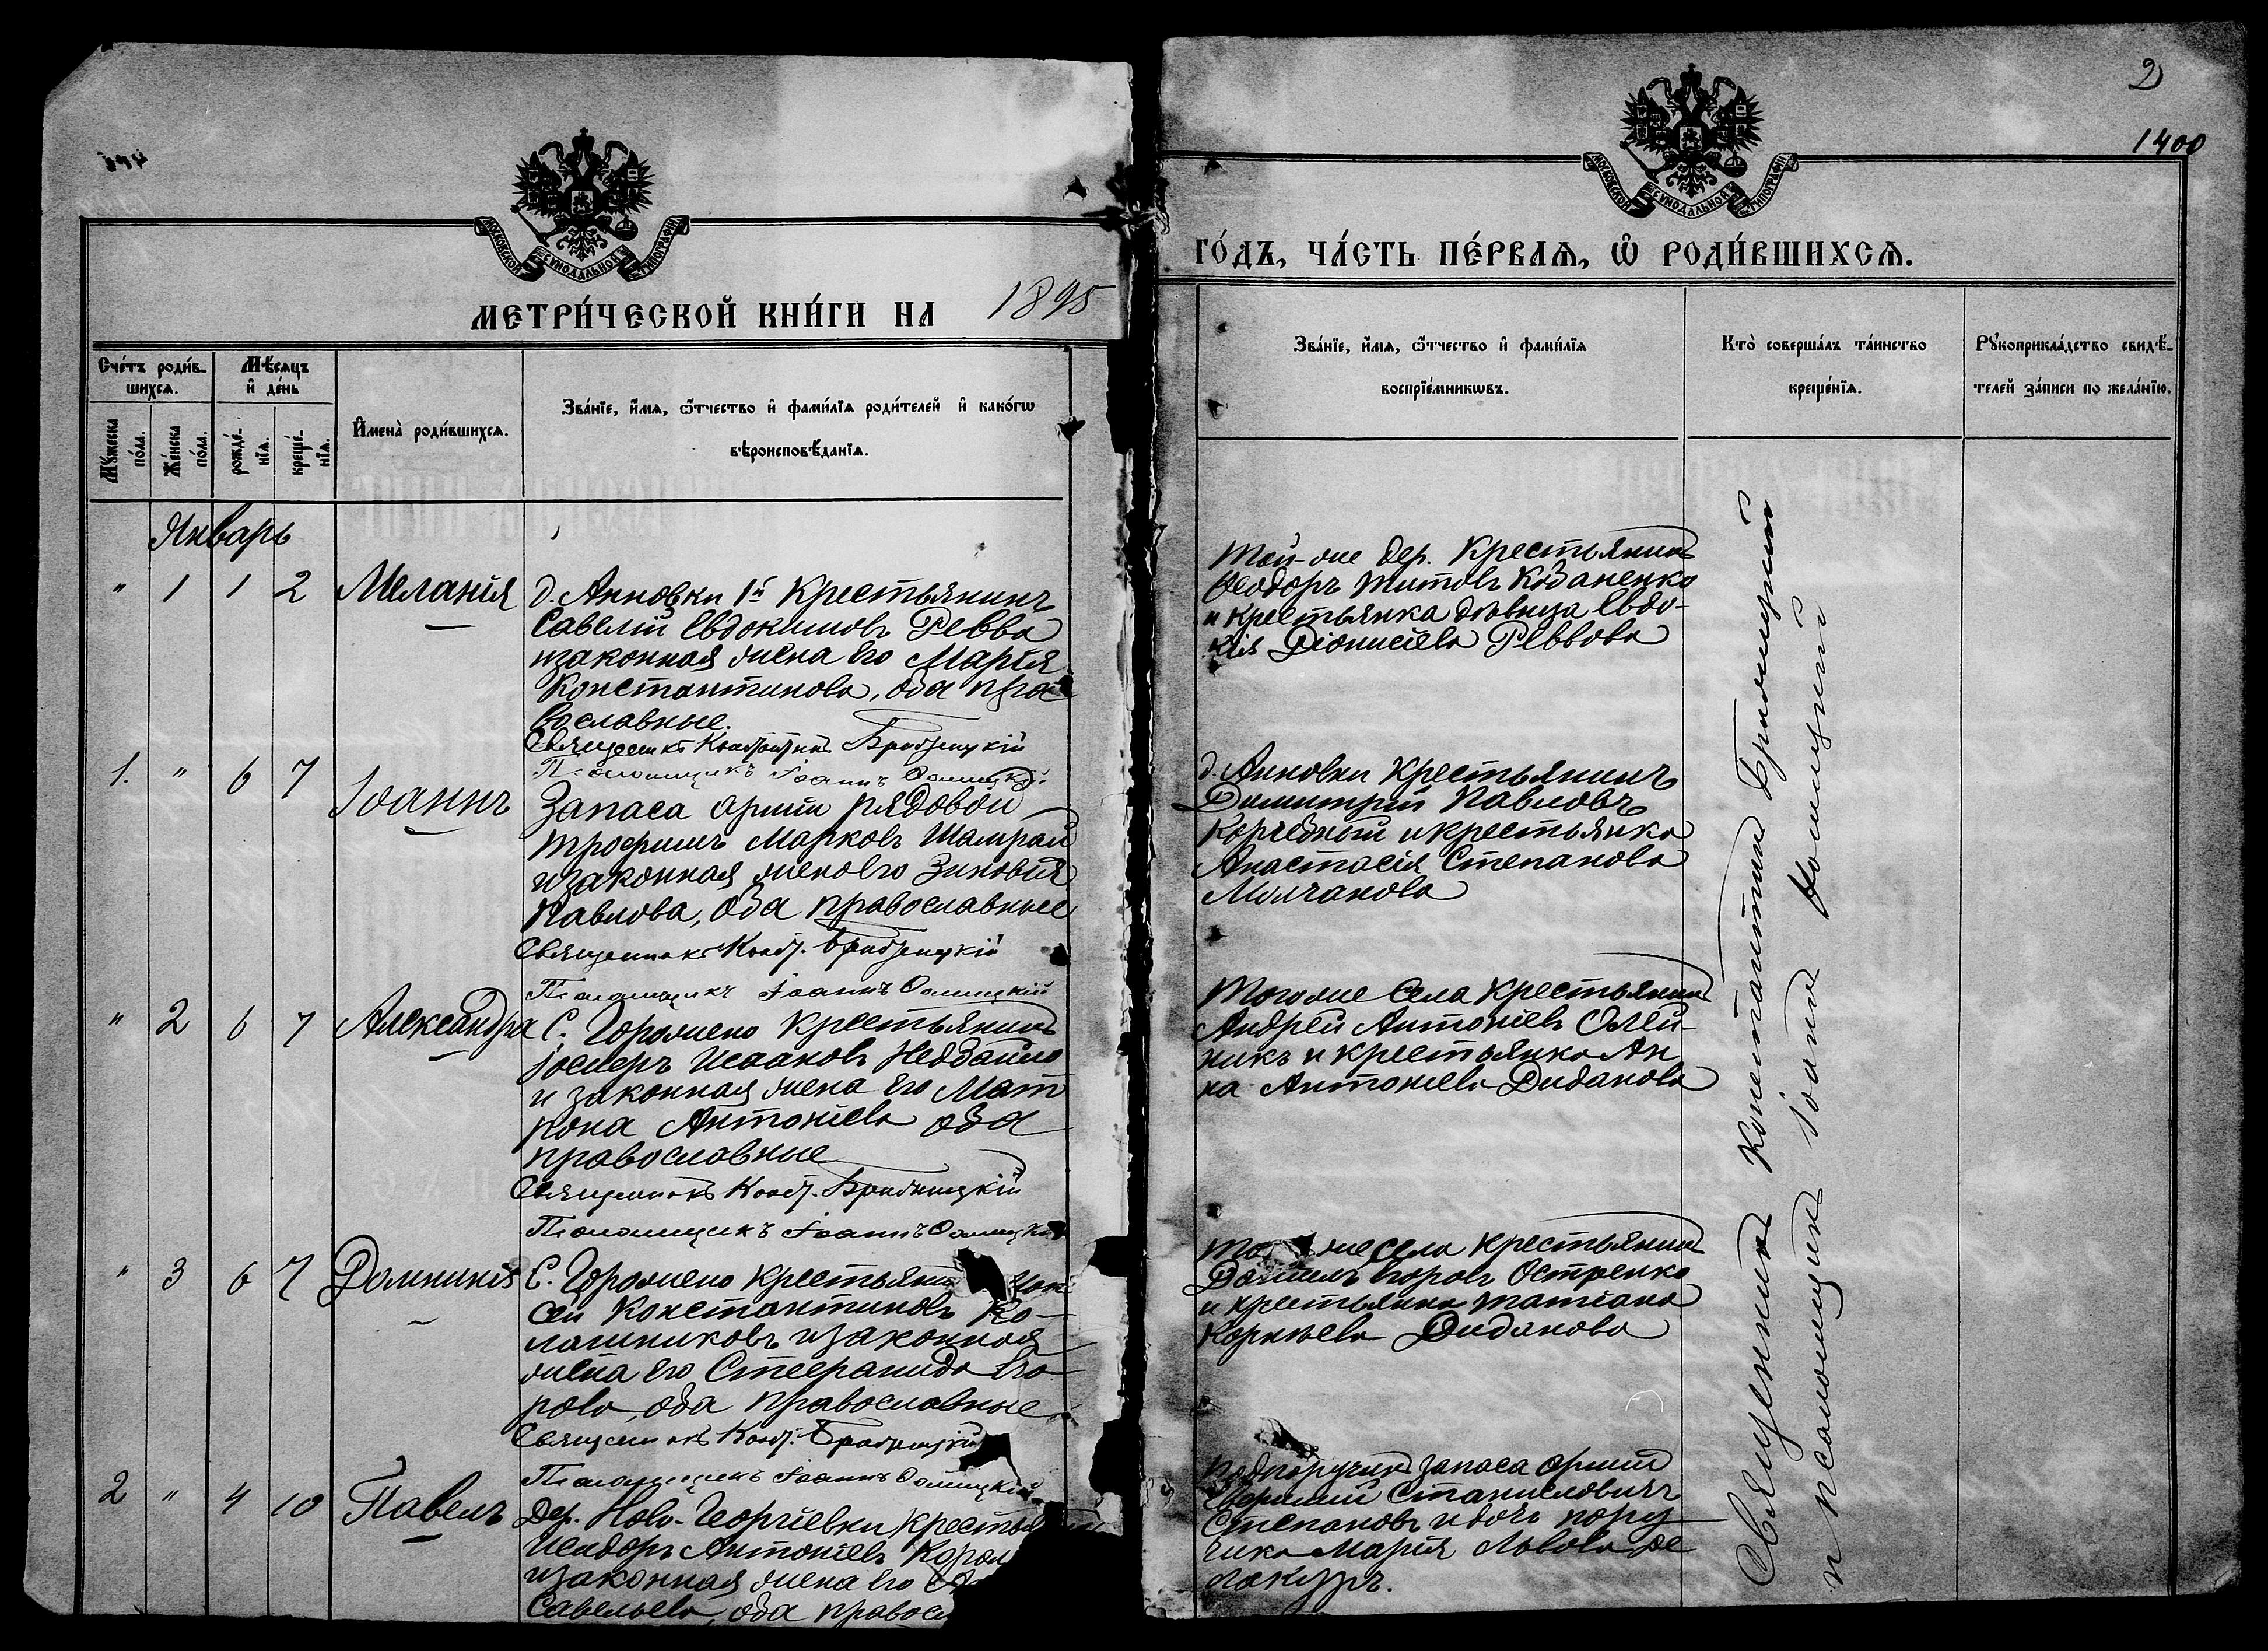 МОСКОВСКОЙ СѴНОДАЛЬНОЙ ТИПОГРАФІИ
МЕТРИ́ЧЕСКОЙ КНИ́ГИ НА 1895
Сче́тъ роди́в-
шихсѧ.
Мѣ́сѧцъ
и҆ де́нь
Мꙋ́жеска
по́ла.
Же́нска
по́ла.
рожде́-
нїѧ.
креще́-
нїѧ.
И҆мена̀ роди́вшихсѧ.
Зва́нїе, и҆́мѧ, ѻ҆́тчество и҆ фами́лїѧ роди́телей и҆ како́гѡ
вѣроисповѣ́данїѧ.
Январь
" 1 1 2 Меланія
д. Анновки 1й Крестьянинъ
Савелій Евдокимовъ Ревва
изаконная жена его Марія
Константинова, оба пра
вославные.
Священникъ Константинъ
Псаломщикъ Іоаннъ
1. " 6 7 Іоаннъ
Запаса арміи рядовой
Трофимъ Марковъ Шамрай
изаконная жена его Зиновія
Павлова, оба православные
Священникъ Конст.
Псаломщикъ Іоаннъ
" 2 6 7 Александра
С. Горожено Крестьянинъ
Іосифъ Исааковъ
и законная жена его Мат
рона Антоніева оба
православные
Священникъ Конст.
Псаломщикъ Іоаннъ
" 3 6 7 Домникія
С. Горожено Крестьянин
сей Константиновъ Ко-
лашниковъ изаконная
жена его Стефанида Его
рова, оба православные
Священникъ Конст.
Псаломщикъ Іоаннъ
2 " 4 10 Павелъ
Дер. Ново-Георгіевки крестья
Исидоръ Антоніевъ Корол
изаконная жена его
Савельева, оба правосл
2
1400
МОСКОВСКОЙ СѴНОДАЛЬНОЙ ТИПОГРАФІИ
ГО́ДЪ, ЧА́СТЬ ПЕ́РВАѦ, Ѡ҆ РОДИ́ВШИХСѦ.
Зва́нїе, и҆́мѧ, ѻ҆́тчество и҆ фами́лїѧ
воспрїе́мникѡвъ.
Кто̀ соверша́лъ та́инство
креще́нїѧ.
Рꙋкоприкла́дство свидѣ́-
телей за́писи по жела́нїю.
Той-же дер. Крестьянинъ
Ѳеодоръ Титовъ Козаненко
и крестьянка дѣвица Евдо-
кія Діонисіева Реввова
д. Анновки Крестьянинъ
Димитрій Павловъ
Корчевный икрестьянка
Анастасія Степанова
Молчанова
Тогоже Села Крестьянинъ
Андрей Антоніевъ Олей-
никъ и крестьянка Ан
на Антоніева Диданова
То же села крестьянинъ
Даніилъ Егоровъ Остренко
и крестьянка Татіана
Корнѣева Диданова
Подпоручикъ запаса арміи
Евфимій Станиславовичъ
Степановъ идочь пору
чика Марія Львова Де
лакуръ.
Священникъ Константинъ
и псаломщикъ Іоаннъ